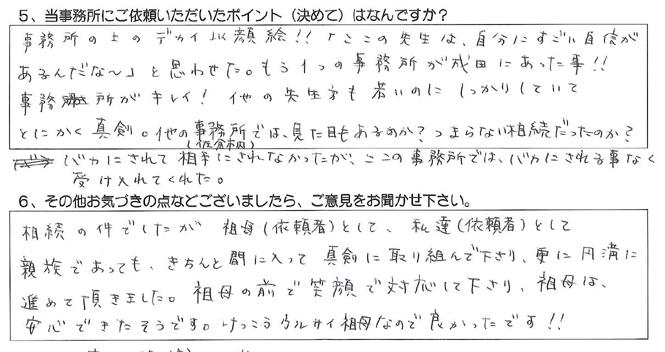 5、当事務所にご依頼いただいたポイント（決めて）はなんですか？
事務所の上のデカイ似顔絵!!「ここの先生は、自分にすごい自信が
あるんだな〜」と思わせた。もう1つの事務所が成田にあった事!!
事務所がキレイ！他の先生方も若いのにしっかりしていて
とにかく真剣。他の事務所では、見た目もあるのか？つまらない相続だったのか？
バカにされて相手にされなかったが、ここの事務所では、バカにされる事なく
受け入れてくれた。
6、その他お気づきの点などございましたら、ご意見をお聞かせ下さい。
相続の件でしたが 祖母（依頼者）として、私達（依頼者）として
親族であっても、きちんと間に入って真剣に取り組んで下さり、更に円満に
進めて頂きました。祖母の前で笑顔で対応して下さり、祖母は、
安心できたそうです。けっこうウルサイ祖母なので良かったです!!